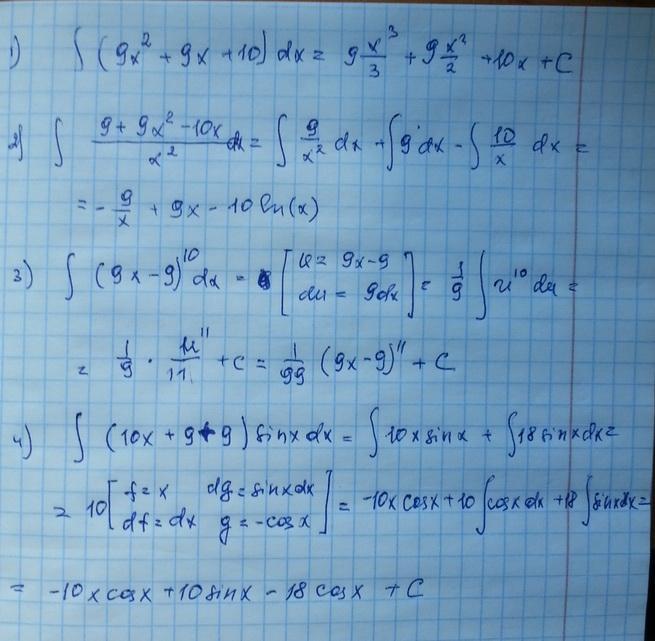 1) ∫ (9x² + 9x + 10) dx = 9 x³/3 + 9 x²/2 + 10x + C
2) ∫ (9 + 9x² - 10x)/x² dx = ∫ 9/x² dx + ∫ 9 dx - ∫ 10/x dx =
= - 9/x + 9x - 10 ln(x)
3) ∫ (9x - 9)¹⁰ dx = [ u = 9x - 9 du = 9dx ] = 1/9 ∫ u¹⁰ du =
= 1/9 · u¹¹/11 + c = 1/99 (9x - 9)¹¹ + C
4) ∫ (10x + 9 + 9) sinx dx = ∫ 10x sinx + ∫ 18 sinx dx =
= 10 [ f = x dg = sinxdx df = dx g = -cosx ] = -10x cosx + 10 ∫ cosx dx + 18 ∫ sinx dx =
= -10x cosx + 10 sinx - 18 cosx + C